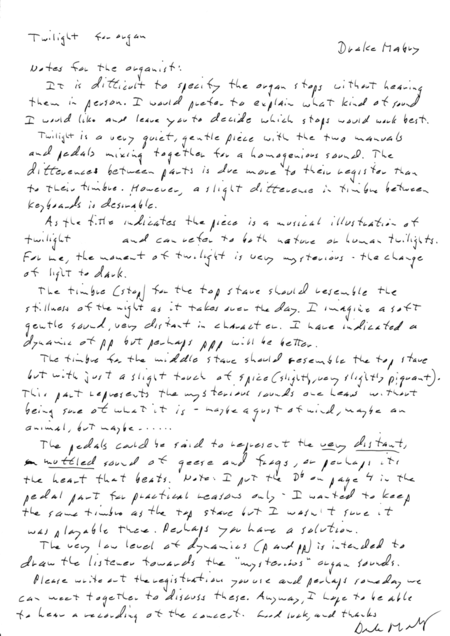 Twilight for organ
Drake Mabry
Notes for the organist:
It is difficult to specify the organ stops without hearing
them in person. I would prefer to explain what kind of sound
I would like and leave you to decide which stops would work best.
Twilight is a very quiet, gentle piece with the two manuals
and pedals mixing together for a homogenious sound. The
differences between parts is due more to their register than
to their timbre. However, a slight difference in timbre between
keyboards is desirable.
As the title indicates the piece is a musical illustration of
twilight and can refer to both nature or human twilights.
For me, the moment of twilight is very mysterious - the change
of light to dark.
The timbre (stop) for the top stave should resemble the
stillness of the night as it takes over the day. I imagine a soft
gentle sound, very distant in character. I have indicated a
dynamic of pp but perhaps ppp will be better.
The timbre for the middle stave should resemble the top stave
but with just a slight touch of spice (slightly, very slightly piquant).
This part represents the mysterious sounds one hears without
being sure of what it is - maybe a gust of wind, maybe an
animal, but maybe......
The pedals could be said to represent the very distant,
muffled sound of geese and frogs, or perhaps its
the heart that beats. Note: I put the Db on page 4 in the
pedal part for practical reasons only - I wanted to keep
the same timbre as the top stave but I wasn't sure it
was playable there. Perhaps you have a solution.
The very low level of dynamics (p and pp) is intended to
draw the listener towards the "mysterious" organ sounds.
Please write out the registration you use and perhaps someday we
can meet together to discuss these. Anyway, I hope to be able
to hear a recording of the concert. Good luck, and thanks